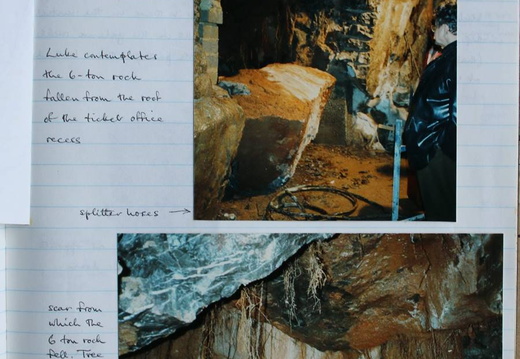 Luke contemplates
the 6-ton rock
fallen from the roof
of the ticket office
recess
splitter hoses →
scar from
which the
6 ton rock
fell. Tree